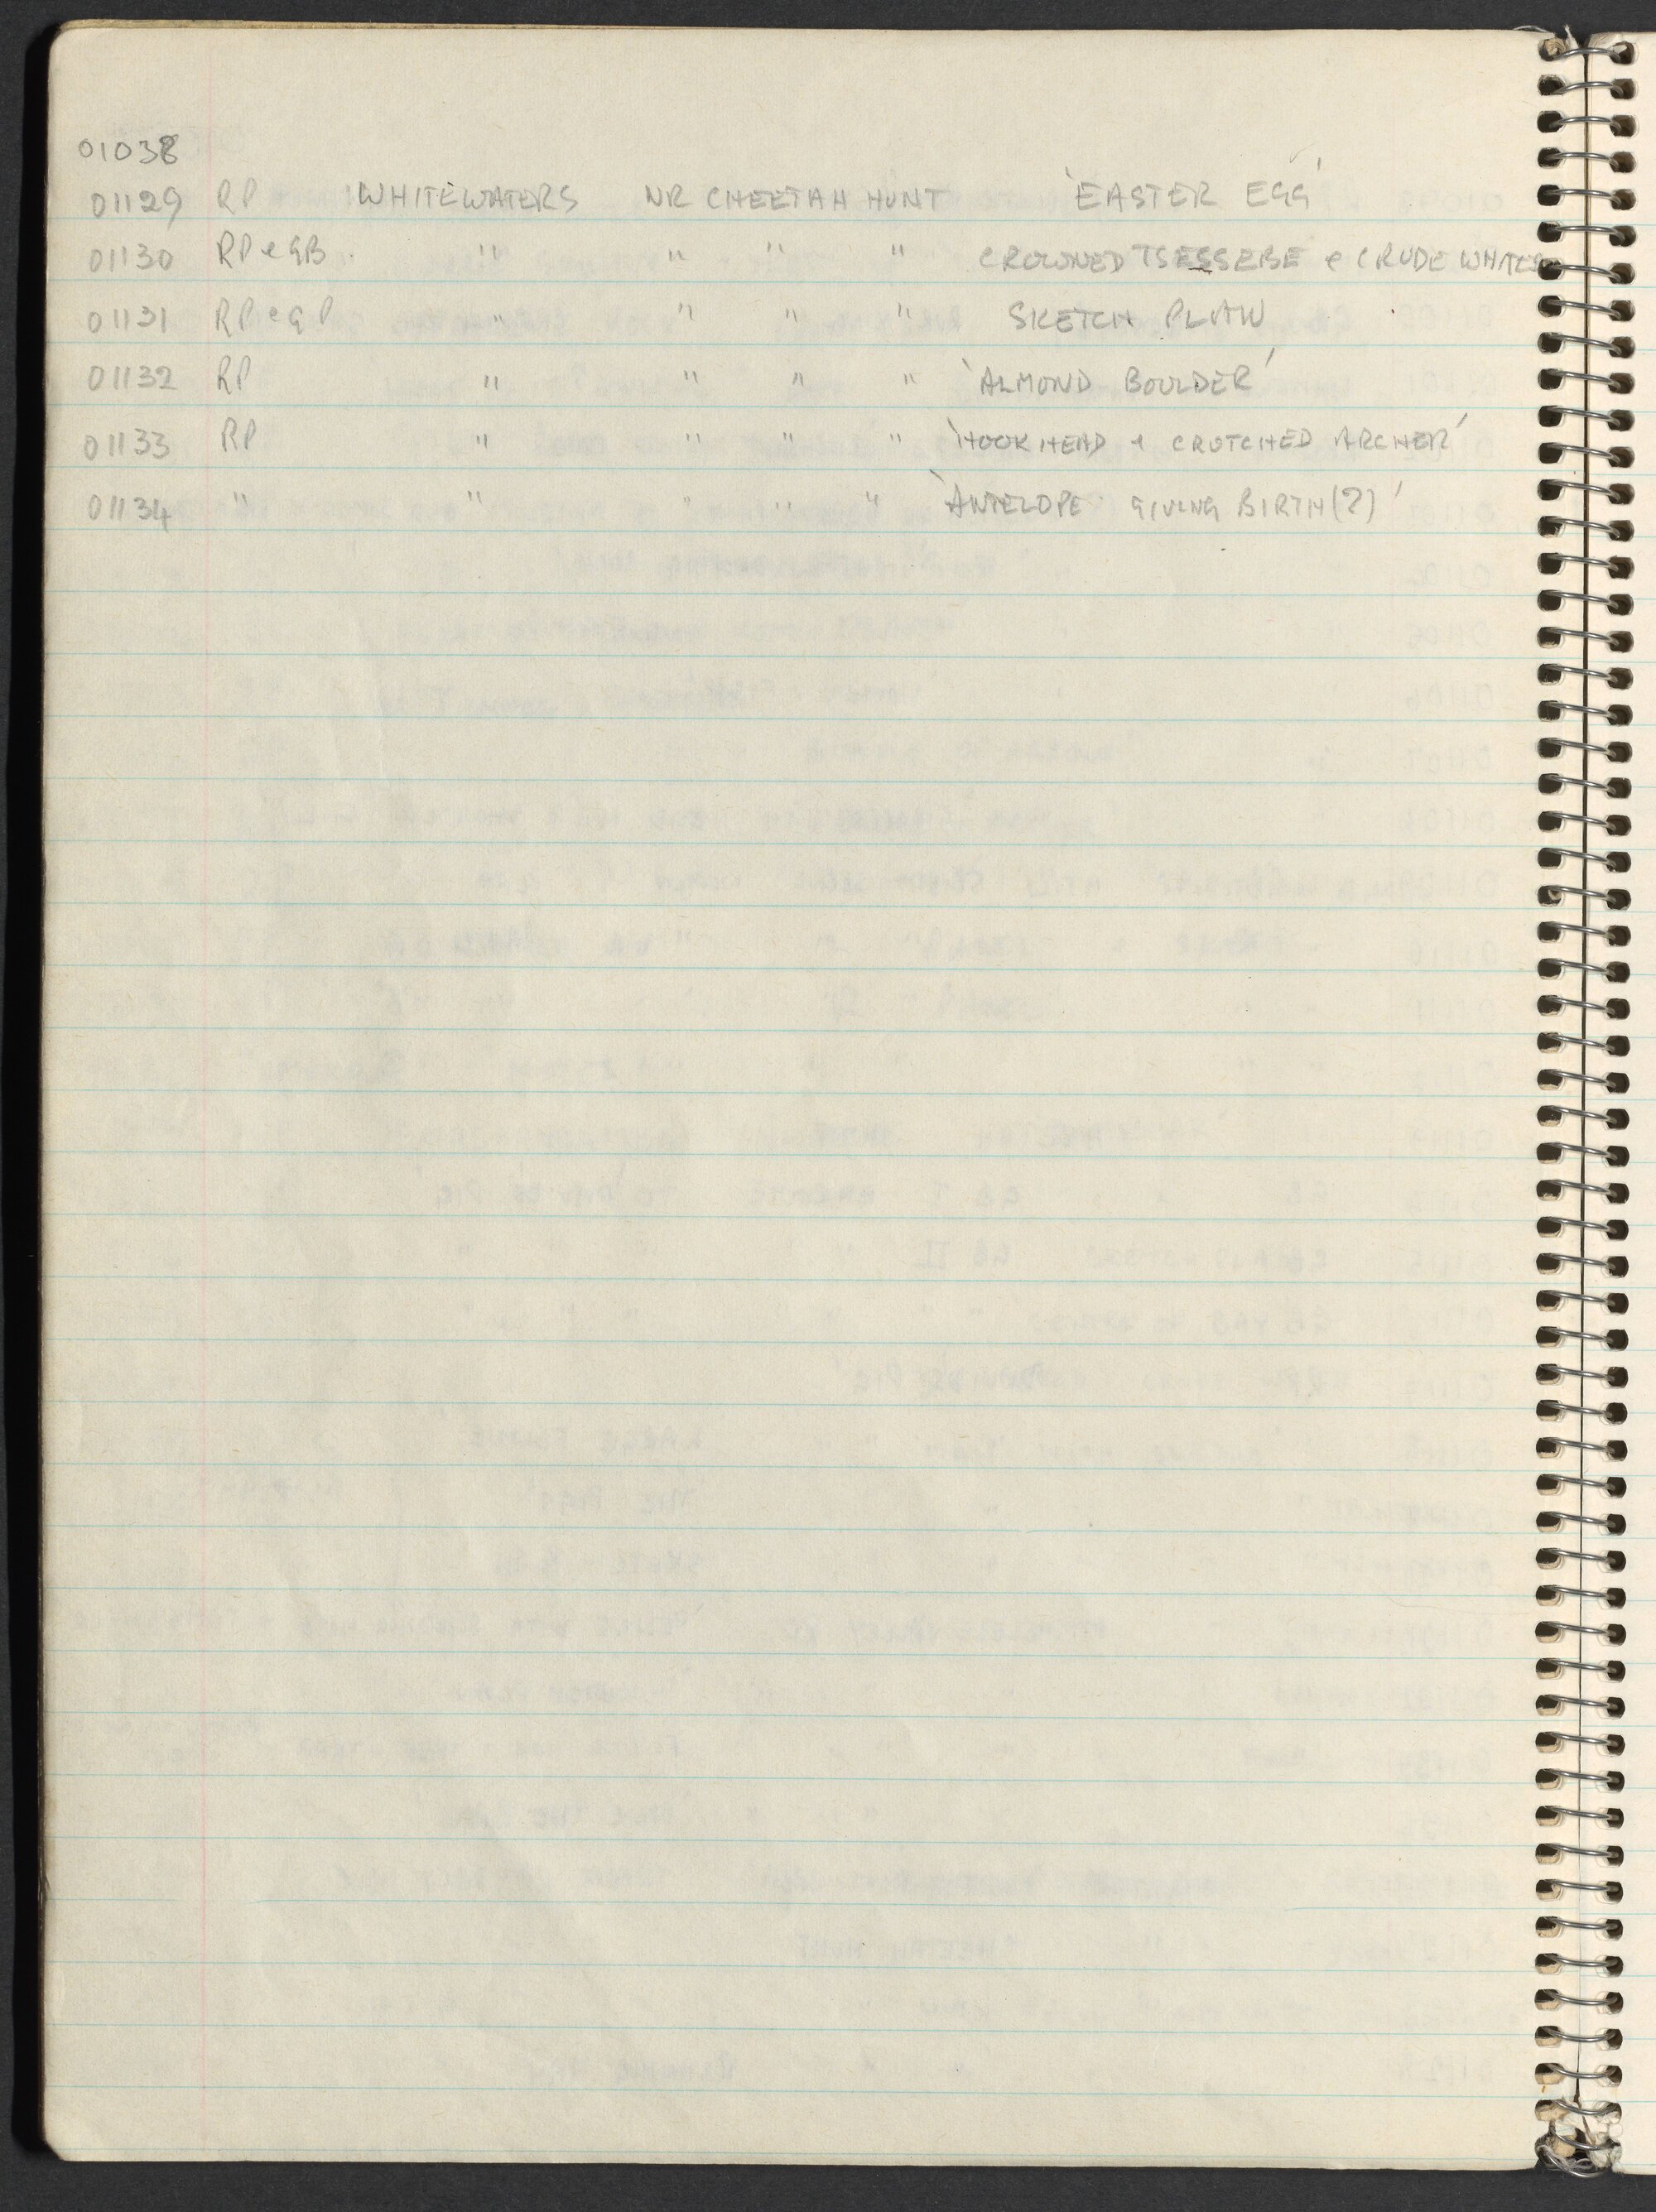 01038
01129 RP WHITEWATERS NR CHEETAH HUNT 'EASTER EGG'
01130 RP e GB. " " " " CROWNED TSESSEBE e CRUDE WHITES
01131 RP e GP " " " " SKETCH PLAN
01132 RP " " " " 'ALMOND BOULDER'
01133 RP " " " " 'HOOK HEAD e CROTCHED ARCHER'
01134 " " " " " 'ANTELOPE GIVING BIRTH(?)'